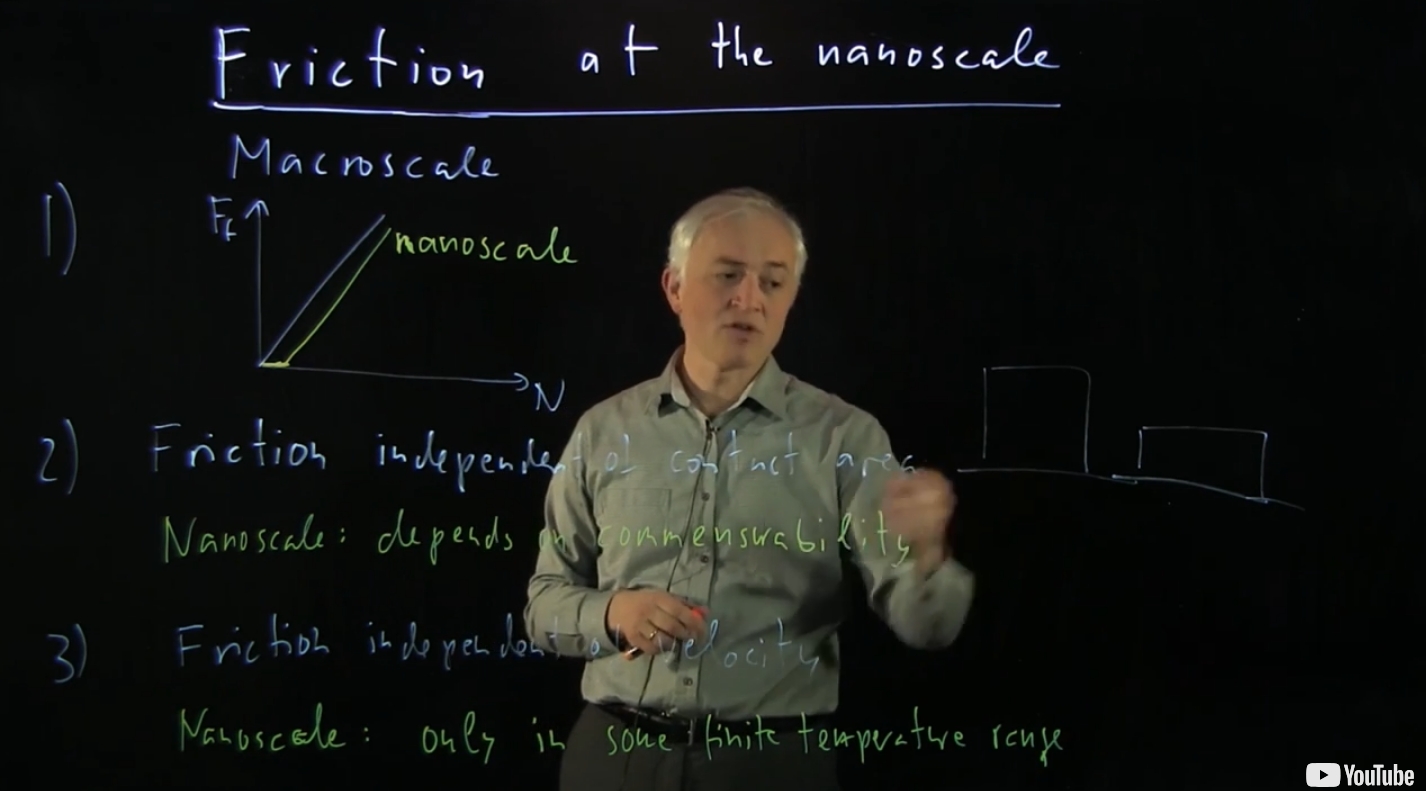 Friction at the nanoscale
Macroscale
1)
Ff
nanoscale
N
2) Friction independent of contact area
Nanoscale: depends on commensurability
3) Friction independent of velocity
Nanoscale: only in some finite temperature range
YouTube